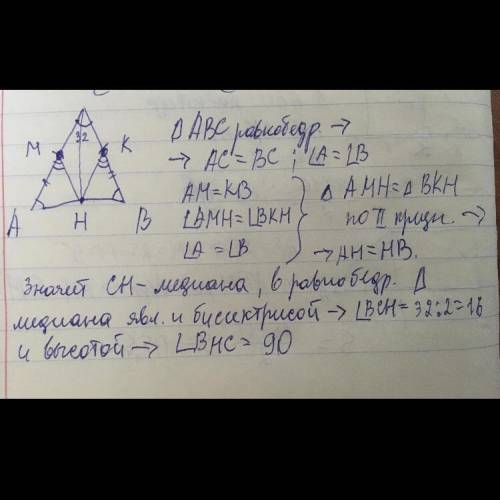 32
M K
A H B
Δ ABC равнобедр. →
→ AC = BC ; ∠A = ∠B
AM = KB
∠AMH = ∠BKH
∠A = ∠B
Δ AMH = Δ BKH
по II призн. →
→ AH = HB.
Значит CH - медиана, в равнобедр. Δ
медиана явл. и биссектрисой → ∠BCH = 32:2 = 16
и высотой → ∠BHC = 90